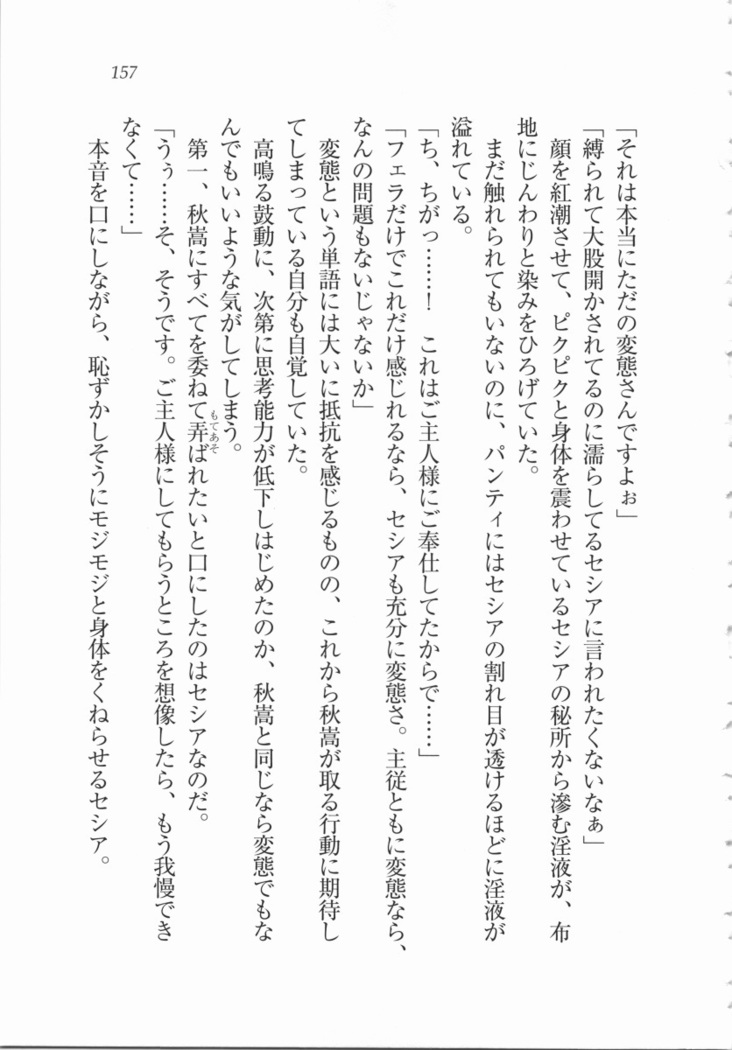 157
「それは本当にただの変態さんですよぉ」
「縛られて大股開かされてるのに濡らしてるセシアに言われたくないなぁ」
　顔を紅潮させて、ピクピクと身体を震わせているセシアの秘所から滲む淫液が、布
地にじんわりと染みをひろげていた。
　まだ触れられてもいないのに、パンティにはセシアの割れ目が透けるほどに淫液が
溢れている。
「ち、ちがっ……！　これはご主人様にご奉仕してたからで……」
「フェラだけでこれだけ感じれるなら、セシアも充分に変態さ。主従ともに変態なら、
なんの問題もないじゃないか」
　変態という単語には大いに抵抗を感じるものの、これから秋嵩が取る行動に期待し
てしまっている自分も自覚していた。
　高鳴る鼓動に、次第に思考能力が低下しはじめたのか、秋嵩と同じなら変態でもな
んでもいいような気がしてしまう。
　第一、秋嵩にすべてを委ねて弄ばれたいと口にしたのはセシアなのだ。
もてあそ
「うぅ……そ、そうです。ご主人様にしてもらうところを想像したら、もう我慢でき
なくて……」
　本音を口にしながら、恥ずかしそうにモジモジと身体をくねらせるセシア。